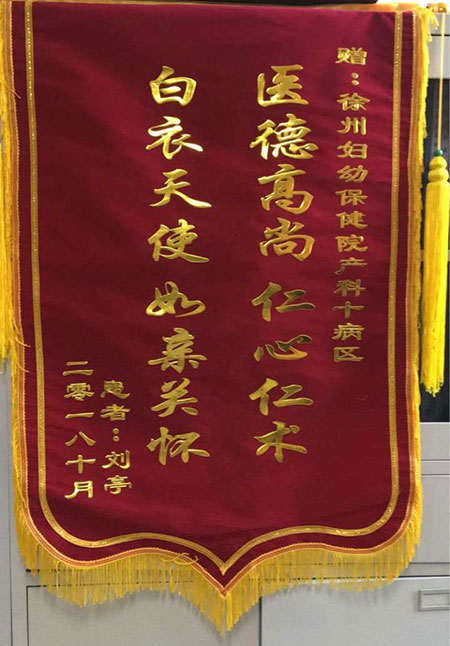 赠：徐州妇幼保健院产科十病区
医德高尚 仁心仁术
白衣天使 如亲关怀
患者：刘亭
二零一八十月